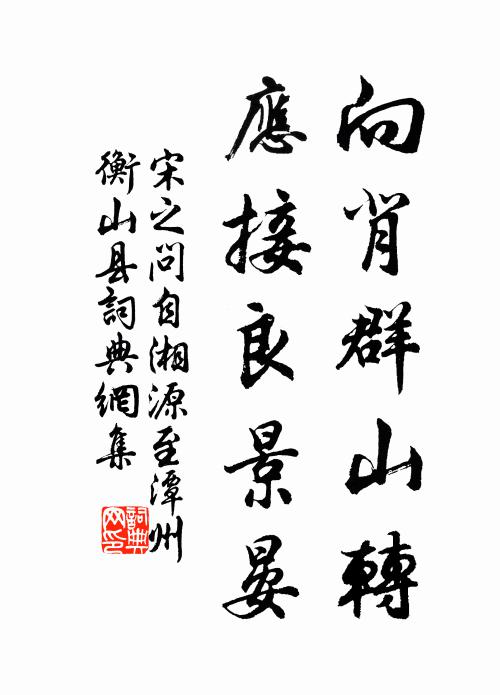 向背群山轉
應接良景晏
宋之问自湘源至潭州
衡山县詞典網集
詞典网印